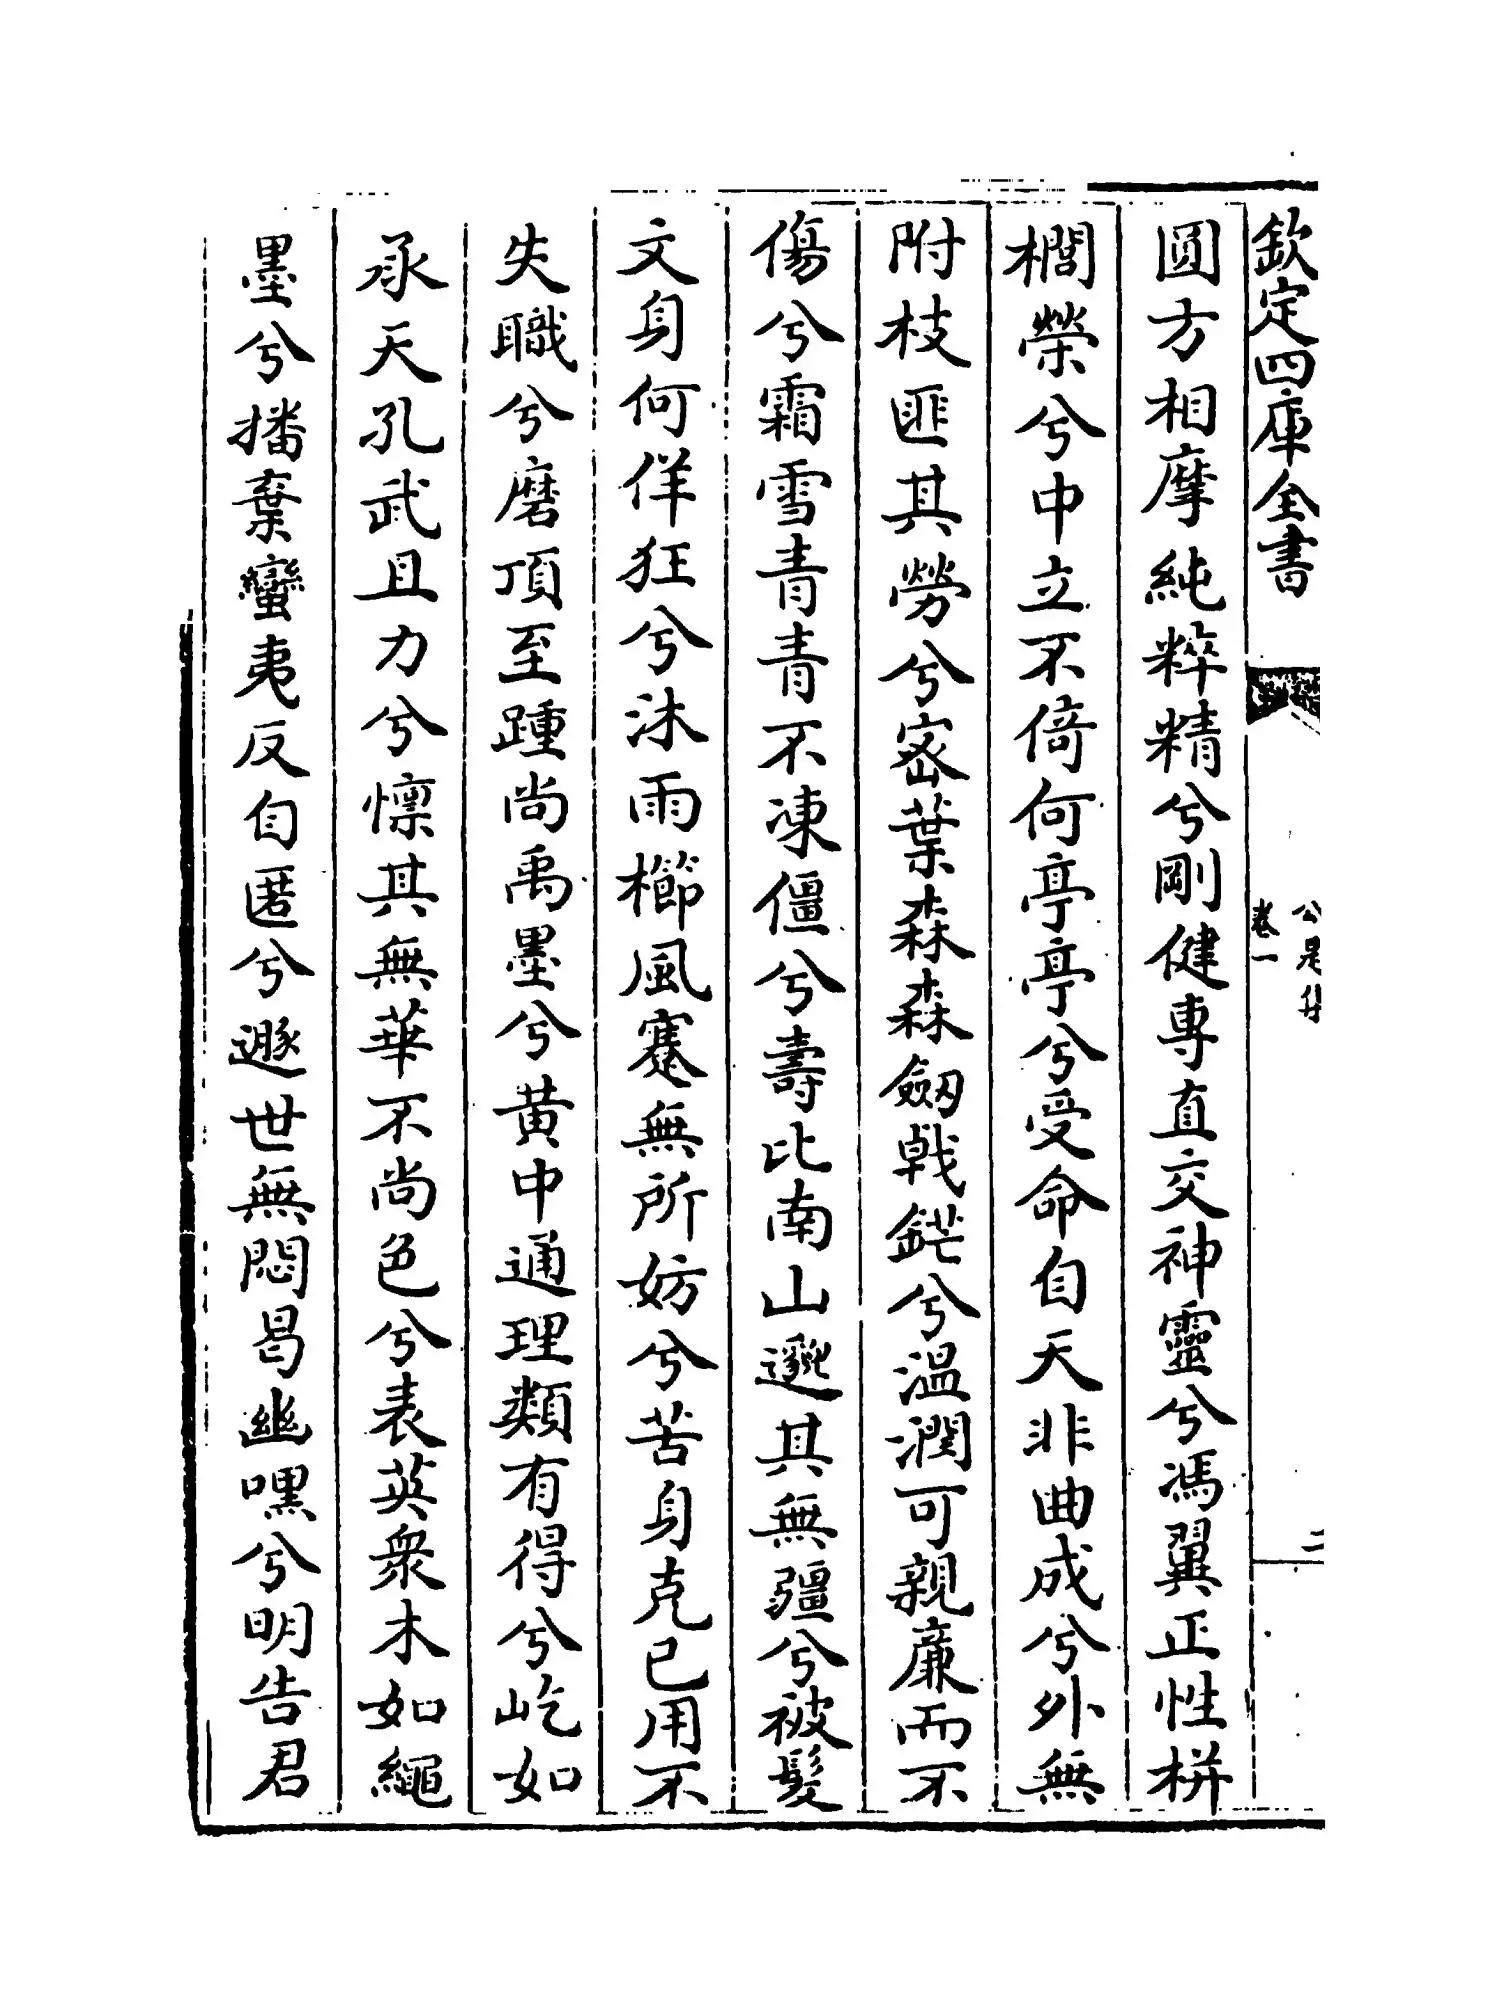 欽定四庫全書
公是集
卷一
二
圓方相摩純粹精兮剛健專直交神靈兮馮翼正性栟
櫚榮兮中立不倚何亭亭兮受命自天非曲成兮外無
附枝匪其勞兮宻葉森森劔㦸鋩兮温潤可親廉而不
傷兮霜雪青青不凍僵兮壽比南山邈其無疆兮被髮
文身何佯狂兮沐雨櫛風蹇無所妨兮苦身克已用不
失職兮磨頂至踵尚禹墨兮黄中通理類有得兮屹如
承天孔武且力兮懔其無華不尚色兮表英衆木如繩
墨兮播棄蠻夷反自匿兮遯世無悶曷幽嘿兮明告君